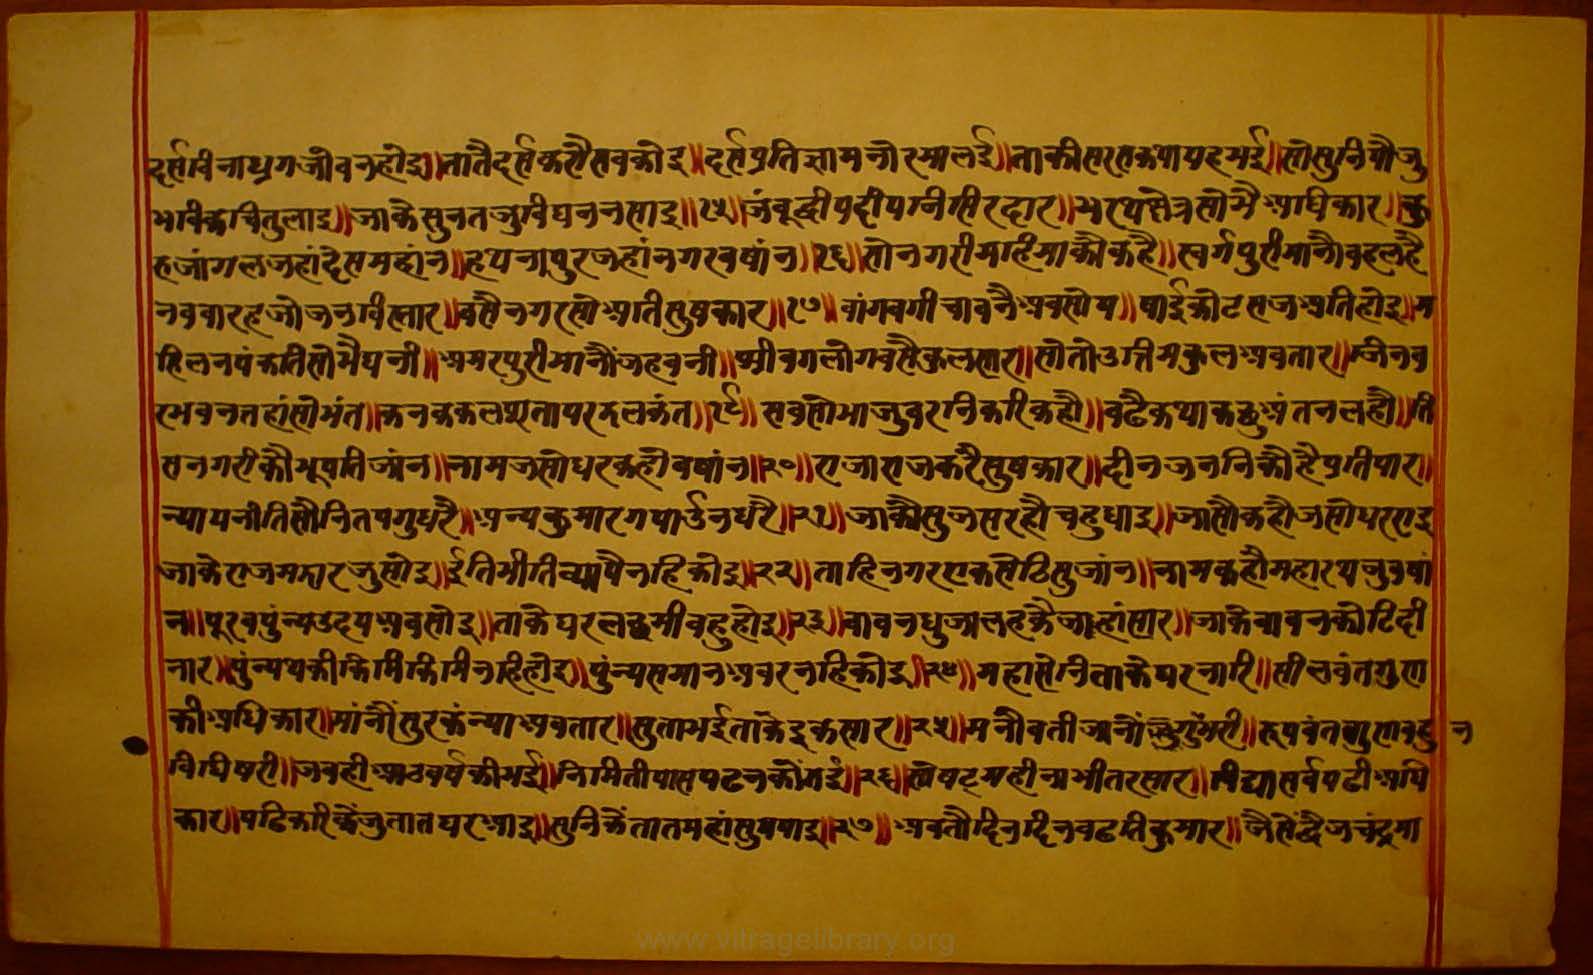 दर्सविनाध्रगजीवनहोइ॥तातैदर्सकरौसबकोइ॥दर्सप्रतिज्ञामनोरमालई॥ताकीसरसकथापहभई॥सोसुनियौजु
भविकचितुलाइ॥जाकेसुनतजुविघननसाइ॥१५॥जंबूद्वीपदीपनिसिरदार॥भरथषेत्रसोभैअधिकार॥कु
रुजांगलजहांदेसमहांन॥हथनापुरजहांनगरबषांन॥१६॥सोनगरीमहिमाकौकहै॥स्वर्गपुरीमानौवहलहै
नवबारहजोजनविस्तार॥बसैनगरसोअतिसुषकार॥१७॥बांगबगीचाबनैअवसोय॥षाईकोटसजअतिहोइ॥म
हिलनपंकतिसोभैघनी॥अमरपुरीमानौंजहबनी॥श्रीवगलोगबसैकुलसार॥सोतोउत्तिमकुलअवतार॥जिनव
रभवनतहांसोभंत॥कनककलशतापरझलकंत॥१९॥सबसोभाजुवरनिकरिकहौ॥बढैकथाकछुअंतनलहौ॥ति
सनगरीकौभूपतिजांन॥नामजसोधरकहौबषांन॥२०॥राजाराजकरैसुषकार॥दीनजननिकौहैप्रतिपार॥
न्यायनीतिसौनितपगुधरै॥अन्यकुमारगपाउंनधरै॥२१॥जाकौसुजसरहौचहुधाइ॥जासौकहौजसोधरराइ
जाकेराजमझारजुसोइ॥ईतिभीतिव्यापैनहिकोइ॥२२॥ताहिनगरएकसेठिसुजांन॥नामकहौमहारथजुबषां
न॥पूरबपुंन्यउदयअबसोइ॥ताकेघरलछमीबहुहोइ॥२३॥बावनधुजालहकैजहांसार॥जाकेबावनकोटिदी
नार॥पुंन्यथकीकिमिकिमिनहिहोइ॥पुंन्यसमानअवरनहिकोइ॥२४॥महासेनिवाकेघरनारि॥सीलवंतगुण
कीअधिकार॥मांनौंसुरकंन्याअवतार॥सुताभईताकेइकसार॥२५॥मनौवतीजानोंगुंभरी॥रूपवंतगुणबहु न
विधिषरी॥जबहीआठवर्षकीभई॥निमितीपासपढनकोंगई॥२६॥सोषटमहीनाभीतरसार॥विद्यासर्वपढीअधि
कार॥पढिकरिकेंजुतातघरआइ॥सुनिकेंतातमहांसुषपाइ॥२७॥अबतौदिनदिनबढतिकुमार॥जैसेंद्वैजचंद्रमा
www.vitragelibrary.org